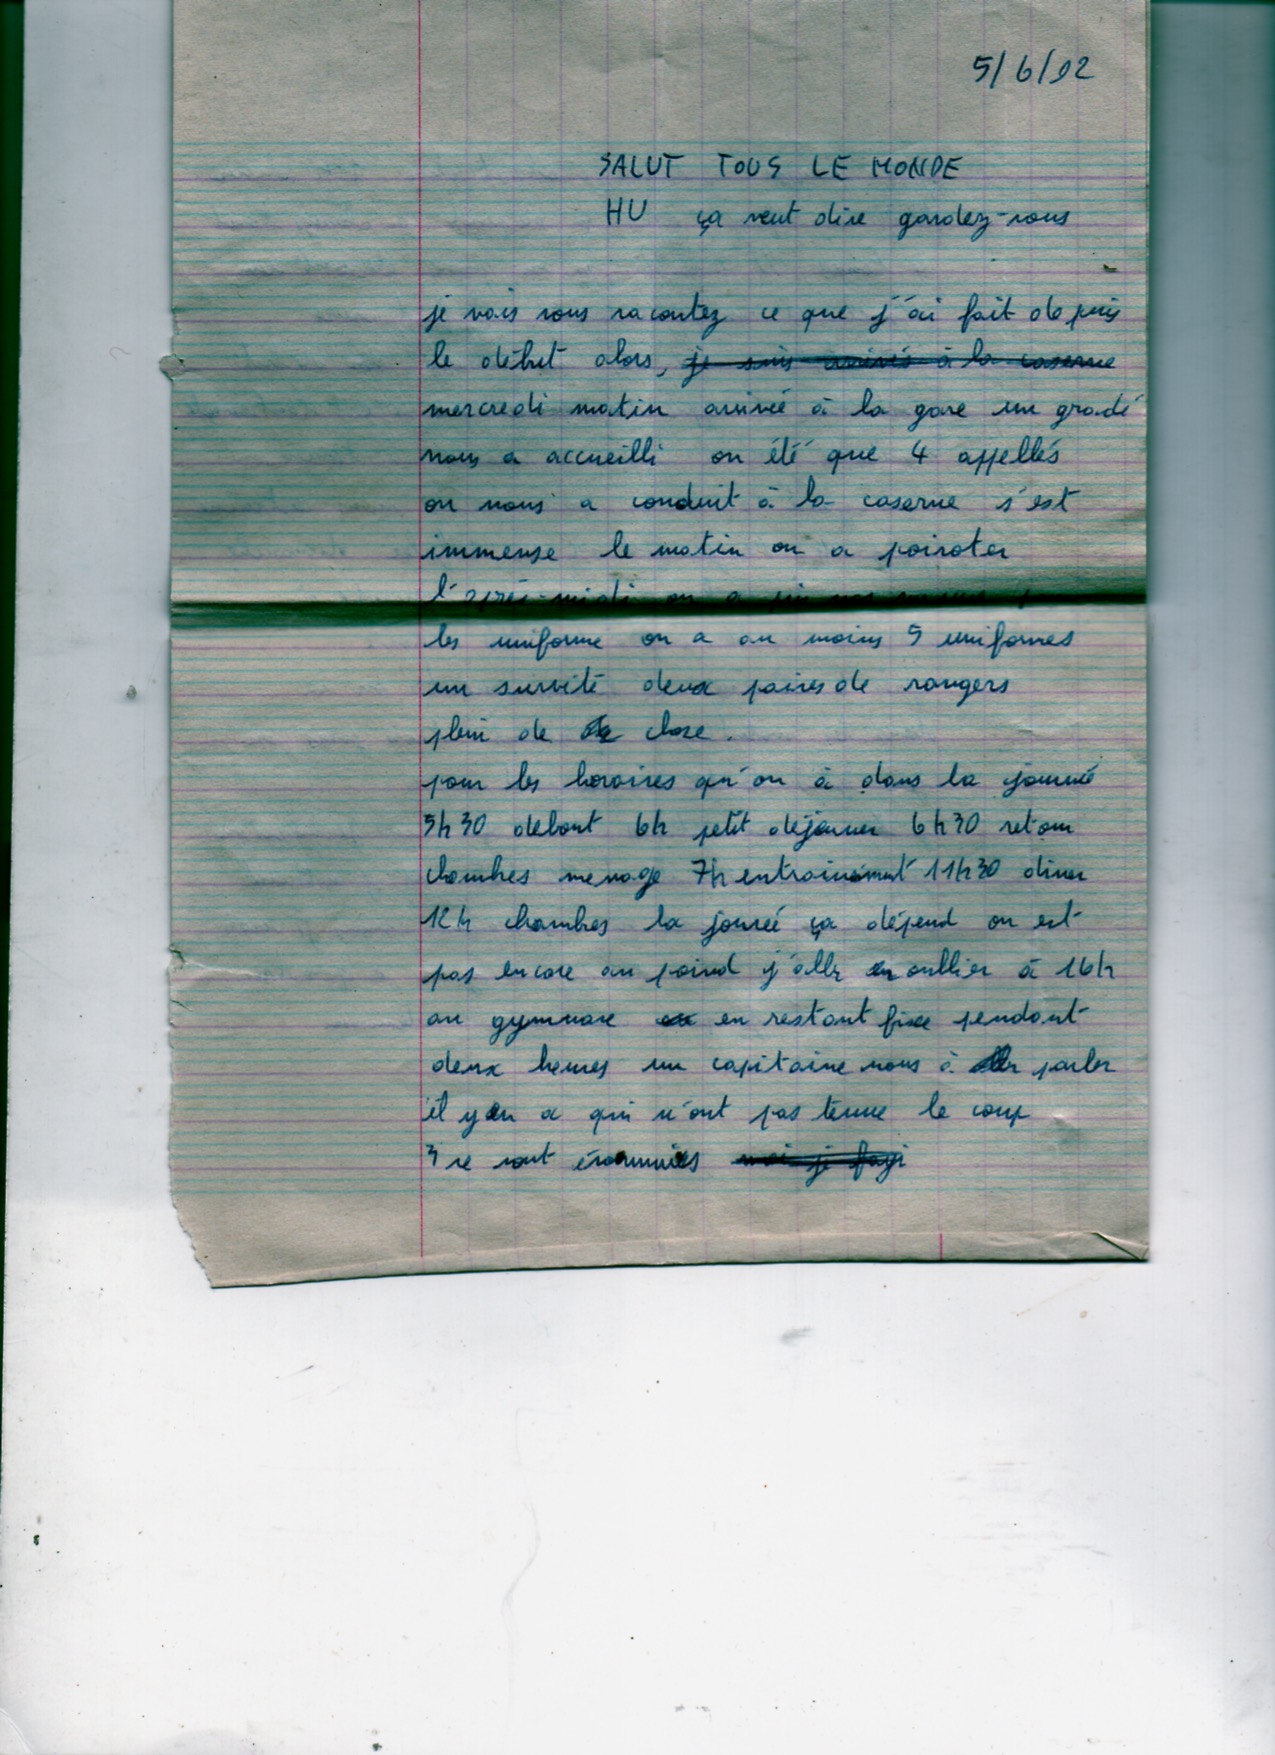 5/6/92
SALUT TOUS LE MONDE
HU ça veut dire gardez-vous
je vais vous racontez ce que j'ai fait depuis
le début alors, je suis arrivés à la caserne
mercredi matin arrivée à la gare un gradé
nous a accueilli on été que 4 appellés
on nous a conduit à la caserne s'est
immense le matin on a poiroter
l'après-midi on a
les uniforme on a au moins 5 uniformes
un survité deux paires de rangers
plein de chose.
pour les horaires qu'on à dans la journée
5h30 debout 6h petit déjeuner 6h30 retour
chambres menage 7h entrainement 11h30 diner
12h chambres la jourée ça dépend on est
pas encore au poind j'allr oullier à 16h
au gymnase en restant fixe pendant
deux heures un capitaine nous à parler
il y en a qui n'ont pas tenue le coup
3 se sont évanouies